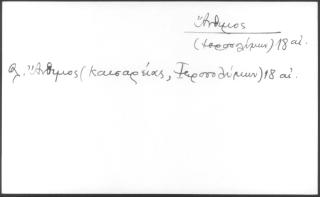 Ἄνθιμος
(Ἱεροσολύμων) 18 αἰ.
Ἄνθιμος (Καισαρείας, Ἱεροσολύμων) 18 αἰ.